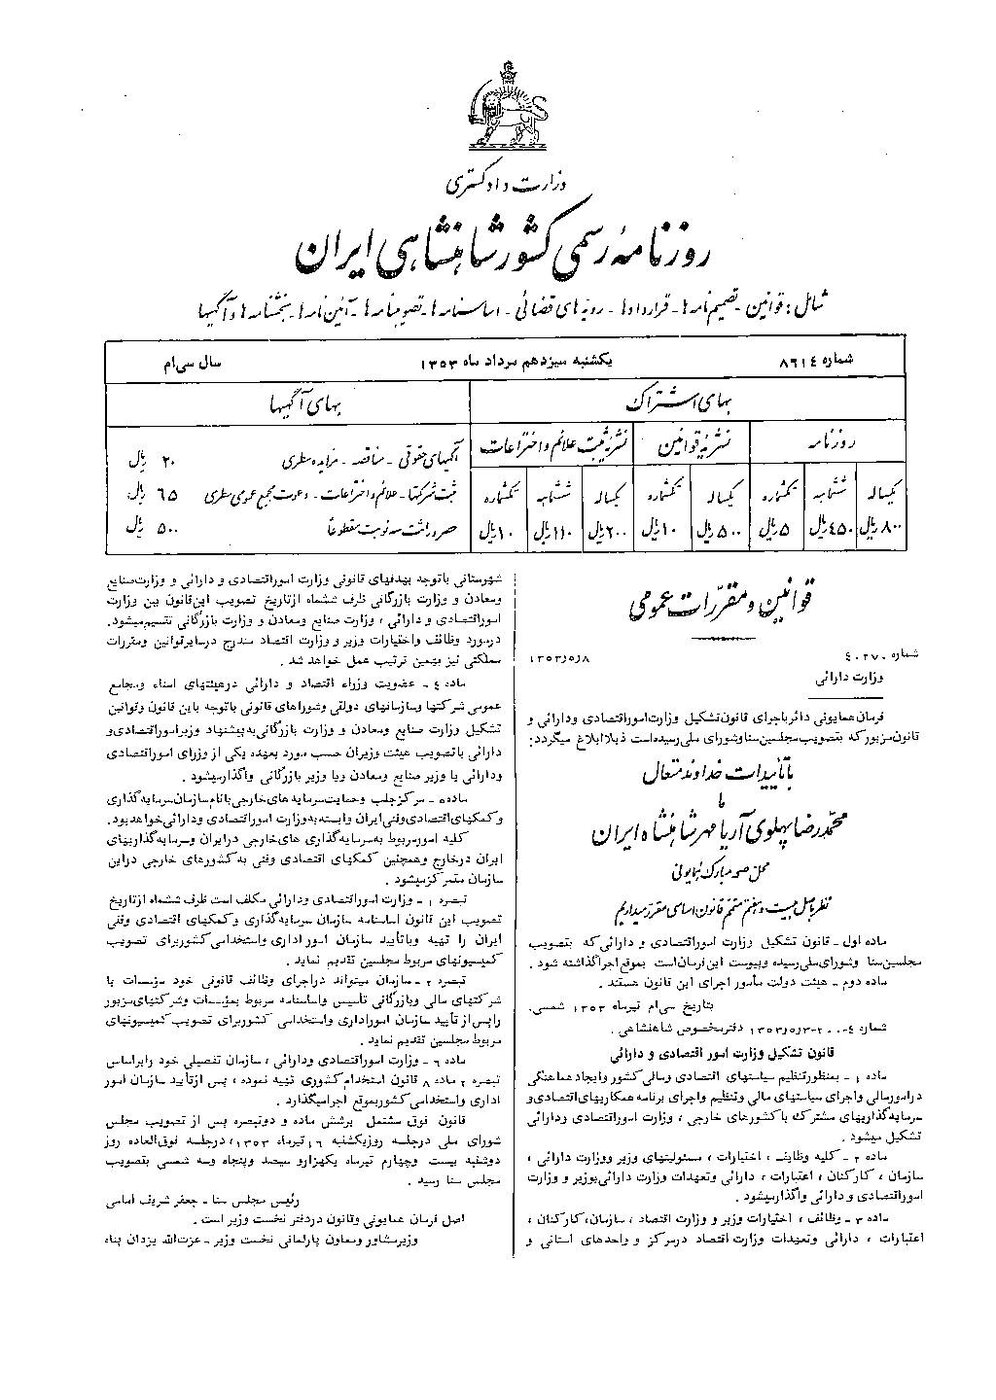 وزارت دادگستری
روزنامه رسمی کشور شاهنشاهی ایران
شامل: قوانین - تصمیم نامه‌ها - قراردادها - رویه‌های قضائی - اساسنامه‌ها - تصویبنامه‌ها - آئین نامه‌ها - بخشنامه‌ها و آگهیها
شماره ۸۶۱۴ یکشنبه سیزدهم مرداد ماه ۱۳۵۳ سال سی‌ام
بهای اشتراک
روزنامه نشریه قوانین نشریه ثبت علائم و اختراعات
یکساله ششماهه تکشماره یکساله تکشماره یکساله ششماهه تکشماره
۸۰۰ ریال ۴۵۰ ریال ۵ ریال ۵۰۰ ریال ۱۰ ریال ۲۰۰ ریال ۱۱۰ ریال ۱۰ ریال
بهای آگهیها
آگهیهای حقوقی - مناقصه - مزایده سطری ۲۰ ریال
ثبت شرکتها - علائم و اختراعات - دعوت مجمع عمومی سطری ۶۵ ریال
حصر وراثت سه نوبت مقطوعاً ۵۰۰ ریال
قوانین و مقررات عمومی
شماره ۴۰۲۷۰ ۱۳۵۳/۵/۸
وزارت دارائی
فرمان همایونی دائر باجرای قانون تشکیل وزارت امور اقتصادی و دارائی و
قانون مزبور که بتصویب مجلسین سنا و شورای ملی رسیده است ذیلا ابلاغ میگردد:
با تأییدات خداوند متعال
ما
محمدرضا پهلوی آریامهر شاهنشاه ایران
محل صحه مبارک همایونی
نظر باصل بیست و هفتم متمم قانون اساسی مقرر میداریم
ماده اول - قانون تشکیل وزارت امور اقتصادی و دارائی که بتصویب
مجلسین سنا و شورای ملی رسیده و پیوست این فرمان است بموقع اجرا گذاشته شود .
ماده دوم - هیئت دولت مأمور اجرای این قانون هستند .
بتاریخ سی ام تیر ماه ۱۳۵۳ شمسی.
شماره ۲۰۰۴-۱۳۵۳/۵/۳ دفتر مخصوص شاهنشاهی .
قانون تشکیل وزارت امور اقتصادی و دارائی
ماده ۱ - بمنظور تنظیم سیاستهای اقتصادی و مالی کشور و ایجاد هماهنگی
در امور مالی و اجرای سیاستهای مالی و تنظیم و اجرای برنامه همکاریهای اقتصادی و
سرمایه گذاریهای مشترک با کشورهای خارجی ، وزارت امور اقتصادی و دارائی
تشکیل میشود .
ماده ۲ - کلیه وظایف ، اختیارات ، مسئولیتهای وزیر و وزارت دارائی ،
سازمان ، کارکنان ، اعتبارات ، دارائی و تعهدات وزارت دارائی بوزیر و وزارت
امور اقتصادی و دارائی واگذار میشود .
ماده ۳ - وظائف ، اختیارات وزیر و وزارت اقتصاد ، سازمان، کارکنان ،
اعتبارات ، دارائی و تعهدات وزارت اقتصاد در مرکز و واحدهای استانی و
شهرستانی با توجه بهدفهای قانونی وزارت امور اقتصادی و دارائی و وزارت صنایع
و معادن و وزارت بازرگانی ظرف ششماه از تاریخ تصویب این قانون بین وزارت
امور اقتصادی و دارائی ، وزارت صنایع و معادن و وزارت بازرگانی تقسیم میشود.
در مورد وظائف و اختیارات وزیر و وزارت اقتصاد مندرج در سایر قوانین و مقررات
مملکتی نیز بهمین ترتیب عمل خواهد شد .
ماده ۴ - عضویت وزراء اقتصاد و دارائی در هیئتهای امناء و مجامع
عمومی شرکتها و سازمانهای دولتی و شوراهای قانونی با توجه باین قانون و قوانین
تشکیل وزارت صنایع و معادن و وزارت بازرگانی به پیشنهاد وزیر امور اقتصادی و
دارائی با تصویب هیئت وزیران حسب مورد بعهده یکی از وزرای امور اقتصادی
و دارائی یا وزیر صنایع و معادن و یا وزیر بازرگانی واگذار میشود .
ماده ۵ - مرکز جلب و حمایت سرمایه های خارجی با نام سازمان سرمایه گذاری
و کمکهای اقتصادی و فنی ایران وابسته به وزارت امور اقتصادی و دارائی خواهد بود.
کلیه امور مربوط به سرمایه گذاری های خارجی در ایران و سرمایه گذاریهای
ایران در خارج و همچنین کمکهای اقتصادی وفنی به کشورهای خارجی در این
سازمان متمرکز میشود .
تبصره ۱ - وزارت امور اقتصادی و دارائی مکلف است ظرف ششماه از تاریخ
تصویب این قانون اساسنامه سازمان سرمایه گذاری و کمکهای اقتصادی وفنی
ایران را تهیه و با تأیید سازمان امور اداری و استخدامی کشور برای تصویب
کمیسیونهای مربوط مجلسین تقدیم نماید .
تبصره ۲ - سازمان میتواند در اجرای وظائف قانونی خود مؤسسات یا
شرکتهای مالی و بازرگانی تأسیس و اساسنامه مربوط بمؤسسات و شرکتهای مزبور
را پس از تأیید سازمان امور اداری و استخدامی کشور برای تصویب کمیسیونهای
مربوط مجلسین تقدیم نماید .
ماده ۶ - وزارت امور اقتصادی و دارائی ، سازمان تفصیلی خود را بر اساس
تبصره ۲ ماده ۸ قانون استخدام کشوری تهیه نموده ، پس از تأیید سازمان امور
اداری و استخدامی کشور بموقع اجرا میگذارد .
قانون فوق مشتمل برشش ماده و دو تبصره پس از تصویب مجلس
شورای ملی در جلسه روز یکشنبه ۱۶ تیر ماه ۱۳۵۳، در جلسه فوق العاده روز
دوشنبه بیست وچهارم تیر ماه یکهزار و سیصد و پنجاه و سه شمسی بتصویب
مجلس سنا رسید .
رئیس مجلس سنا - جعفر شریف امامی
اصل فرمان همایونی و قانون در دفتر نخست وزیر است .
وزیر مشاور و معاون پارلمانی نخست وزیر - عزت الله یزدان پناه